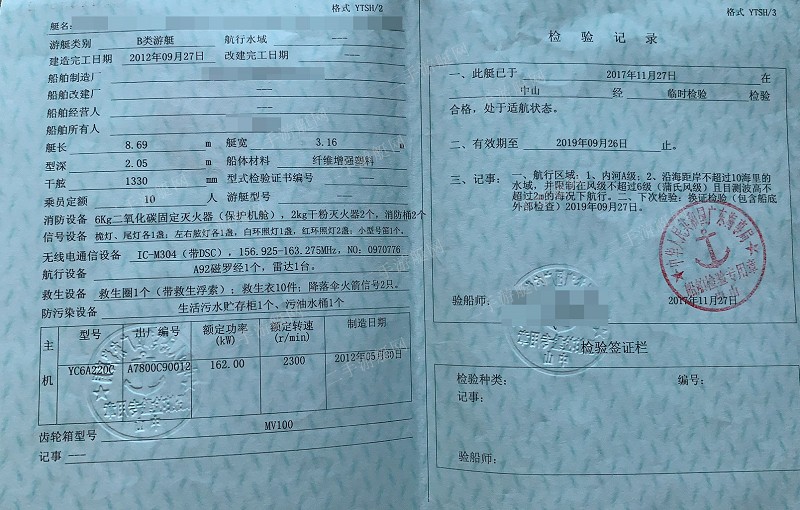 格式 YTSH/2
艇名:
游艇类别 B类游艇 航行水域 ---
建造完工日期 2012年09月27日 改建完工日期 ---
船舶制造厂
船舶改建厂 ---
船舶经营人 ---
船舶所有人
艇长 8.69 m 艇宽 3.16 m
型深 2.05 m 船体材料 纤维增强塑料
干舷 1330 mm 型式检验证书编号 ---
乘员定额 10 人 游艇型号
消防设备 6Kg二氧化碳固定灭火器（保护机舱），2kg干粉灭火器2个，消防桶2个
信号设备 桅灯、尾灯各1盏；左右舷灯各1盏，白环照灯1盏，红环照灯2盏；小型号笛1个。
无线电通信设备 IC-M304（带DSC），156.925-163.275MHz，NO：0970776
航行设备 A92磁罗经1个，雷达1台。
救生设备 救生圈1个（带救生浮索）；救生衣10件；降落伞火箭信号2只。
防污染设备 生活污水贮存柜1个、污油水桶1个
主机 型号 出厂编号 额定功率(kW) 额定转速(r/min) 制造日期
YC6A220C A7800C90012 162.00 2300 2012年05月30日
齿轮箱型号 MV100
记事 ---
格式 YTSH/3
检验记录
一、此艇已于 2017年11月27日 在
中山 经 临时检验 检验
合格，处于适航状态。
二、有效期至 2019年09月26日 止。
三、记事： 一、航行区域：1、内河A级；2、沿海距岸不超过10海里的
水域，并限制在风级不超过6级（蒲氏风级）且目测波高不
超过2m的海况下航行。二、下次检验：换证检验（包含船底
外部检查）2019年09月27日。
中华人民共和国广东海事局
船舶检验专用章
中山
验船师： 2017年11月27日
检验签证栏
检验种类： 编号：
记事：
验船师：